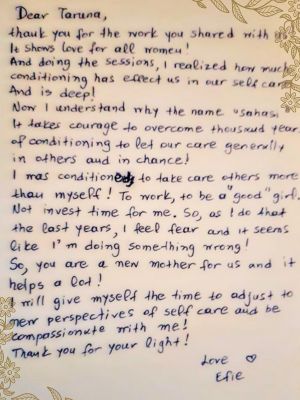 Dear Taruna,
thank you for the work you shared with us
It shows love for all women!
And doing the sessions, I realized how much
conditioning has effect us in our self care
And is deep!
Now I understand why the name "Sahasi
It takes courage to overcome thousand year
of conditioning to let our care generally
in others and in chance!
I was conditioned to take care others more
than myself! To work, to be a "good" girl.
Not invest time for me. So, as I do that
the last years, I feel fear and it seems
like I'm doing something wrong!
So, you are a new mother for us and it
helps a lot!
I will give myself the time to adjust to
new perspectives of self care and be
compassionate with me!
Thank you for your light!
Love
Efie